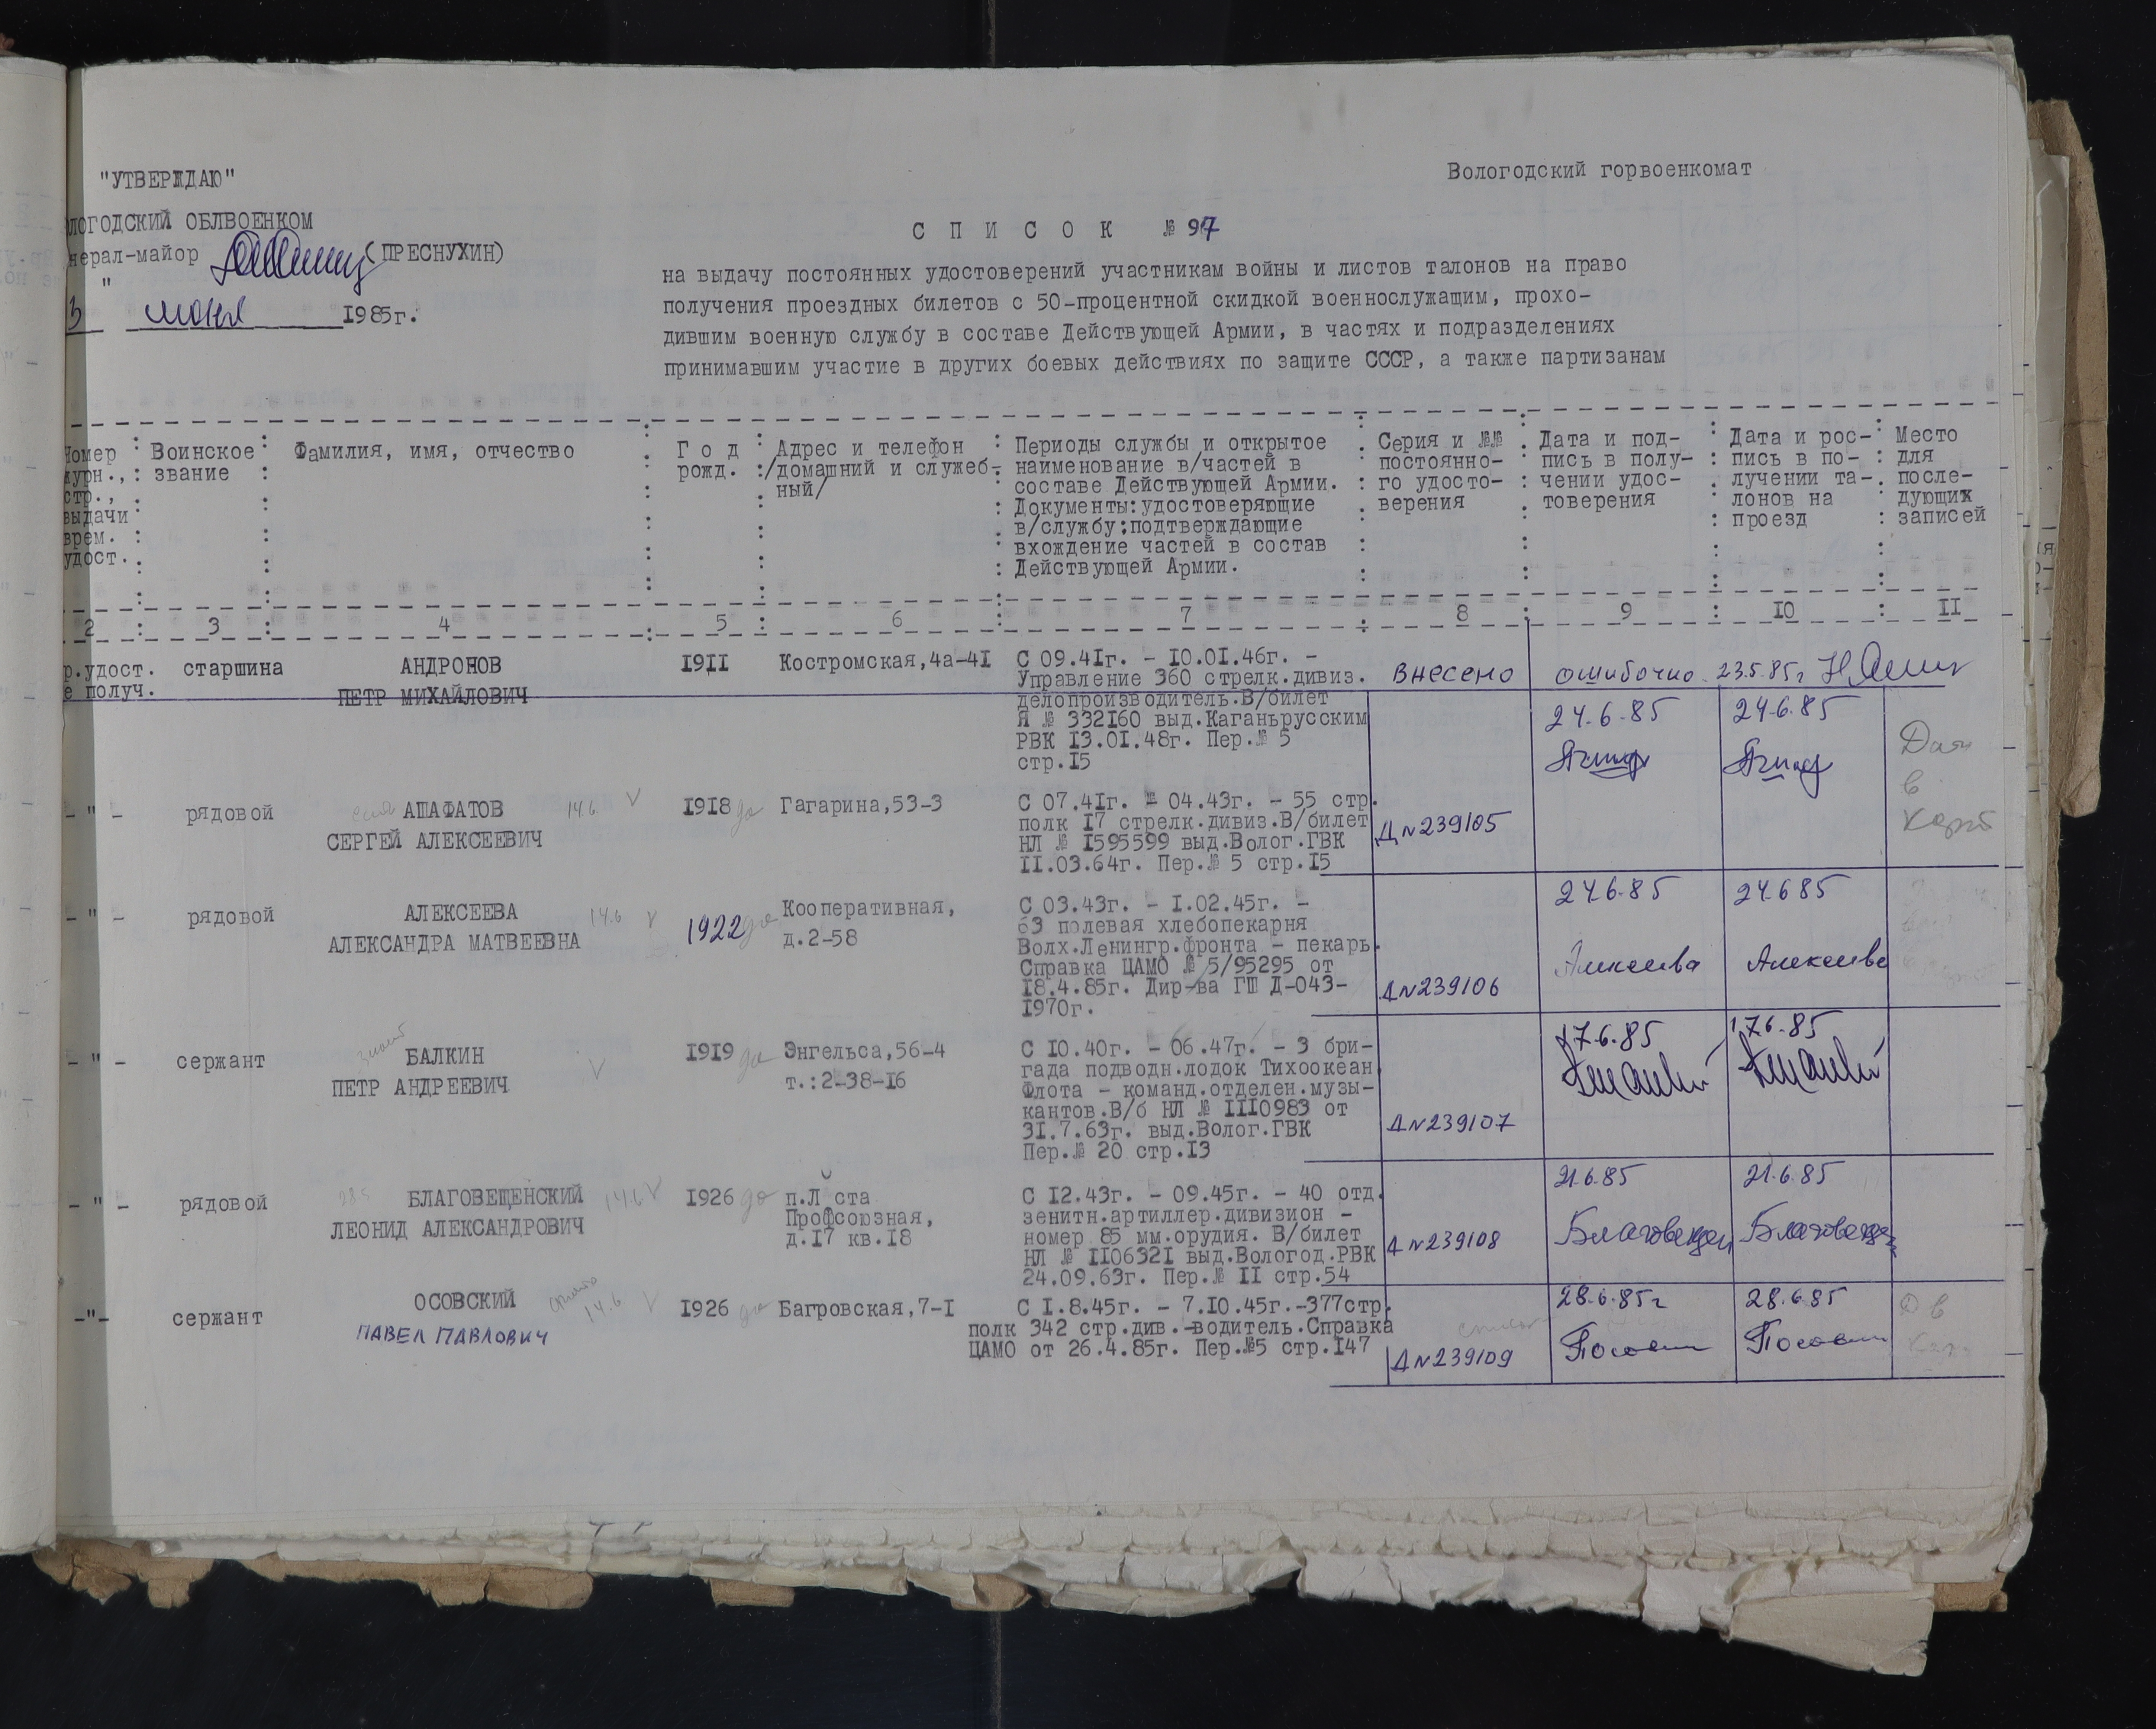 "УТВЕРЖДАЮ"
Вологодский горвоенкомат
ЛОГОДСКИЙ ОБЛВОЕНКОМ
нерал-майор (ПРЕСНУХИН)
"
3 июня 1985г.
С П И С О К № 97
на выдачу постоянных удостоверений участникам войны и листов талонов на право
получения проездных билетов с 50-процентной скидкой военнослужащим, прохо-
дившим военную службу в составе Действующей Армии, в частях и подразделениях
принимавшим участие в других боевых действиях по защите СССР, а также партизанам
Номер
журн.,
стр.,
выдачи
врем.
удост.
Воинское
звание
Фамилия, имя, отчество
Г о д
рожд.
Адрес и телефон
/домашний и служеб-
ный/
Периоды службы и открытое
наименование в/частей в
составе Действующей Армии.
Документы:удостоверяющие
в/службу;подтверждающие
вхождение частей в состав
Действующей Армии.
Серия и №№
постоянно-
го удосто-
верения
Дата и под-
пись в полу-
чении удос-
товерения
Дата и рос-
пись в по-
лучении та-
лонов на
проезд
Место
для
после-
дующих
записей
2 3 4 5 6 7 8 9 10 11
р.удост.
е получ.
старшина
АНДРОНОВ
ПЕТР МИХАЙЛОВИЧ
1911
Костромская,4а-41
С 09.41г. - 10.01.46г. -
Управление 360 стрелк.дивиз.
делопроизводитель.В/билет
Я № 332160 выд.Каганьрусским
РВК 13.01.48г. Пер.№ 5
стр.15
внесено ошибочно 23.5.85г
- " -
рядовой
АШАФАТОВ
СЕРГЕЙ АЛЕКСЕЕВИЧ
14.6 V
1918 да
Гагарина,53-3
С 07.41г. - 04.43г. - 55 стр.
полк 17 стрелк.дивиз.В/билет
НЛ № 1595599 выд.Волог.ГВК
11.03.64г. Пер.№ 5 стр.15
Д N 239105
24.6.85
24.6.85
в
- " -
рядовой
АЛЕКСЕЕВА
АЛЕКСАНДРА МАТВЕЕВНА
14.6 V
1922 да
Кооперативная,
д.2-58
С 03.43г. - 1.02.45г. -
63 полевая хлебопекарня
Волх.Ленингр.фронта - пекарь.
Справка ЦАМО № 5/95295 от
18.4.85г. Дир-ва ГШ Д-043-
1970г.
Д N 239106
24.6.85
Алексеева
24.6 85
Алексеева
- " -
сержант
БАЛКИН
ПЕТР АНДРЕЕВИЧ
V
1919 да
Энгельса,56-4
т.:2-38-16
С 10.40г. - 06.47г. - 3 бри-
гада подводн.лодок Тихоокеан.
Флота - команд.отделен.музы-
кантов.В/б НЛ № 1110983 от
31.7.63г. выд.Волог.ГВК
Пер.№ 20 стр.13
Д N 239107
17.6.85
17.6.85
- " -
рядовой
БЛАГОВЕЩЕНСКИЙ
ЛЕОНИД АЛЕКСАНДРОВИЧ
14.6 V
1926 да
п.Л ста
Профсоюзная,
д.17 кв.18
С 12.43г. - 09.45г. - 40 отд.
зенитн.артиллер.дивизион -
номер 85 мм.орудия. В/билет
НЛ № 1106321 выд.Вологод.РВК
24.09.63г. Пер.№ 11 стр.54
Д N 239108
21.6.85
Благовещен
21.6.85
Благовещен
-"-
сержант
ОСОВСКИЙ
ПАВЕЛ ПАВЛОВИЧ
14.6 V
1926 да
Багровская,7-1
С 1.8.45г. - 7.10.45г.-377стр.
полк 342 стр.див.-водитель.Справка
ЦАМО от 26.4.85г. Пер.№5 стр.147
Д N 239109
28.6.85г
28.6.85